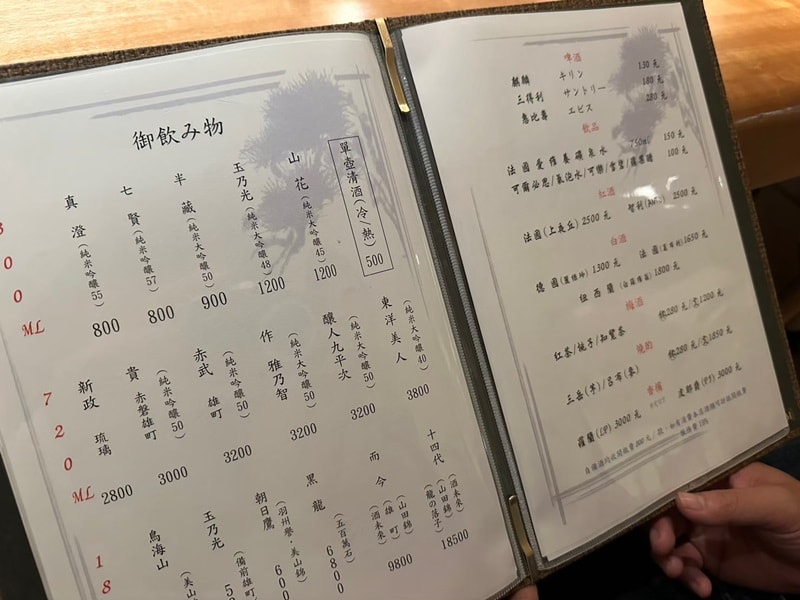 御飲み物
單壺清酒(冷/熱) 500
300ML
山花(純米大吟釀45) 1200
玉乃光(純米大吟釀48) 1200
半藏(純米大吟釀50) 900
七賢(純米吟釀57) 800
真澄(純米吟釀55) 800
720ML
東洋美人(純米大吟釀40) 3800
釀人九平次(純米大吟釀50) 3200
作 雅乃智(純米大吟釀50) 3200
赤武 雄町(純米吟釀50) 3200
貴 赤磐雄町(純米吟釀50) 3000
新政 琉璃 2800
18
十四代(酒未来)(山田錦)(龍の落子) 18500
而今(山田錦)(雄町)(酒未來) 9800
黑龍(五百萬石) 6800
朝日鷹(羽州譽・美山錦) 600
玉乃光(備前雄町) 5
鳥海山(美山
啤酒
麒麟 キリン 130 元
三得利 サントリー 180 元
惠比壽 エビス 280 元
飲品
法國愛維養礦泉水 750ml 150 元
可爾必思/氣泡水/可樂/雪碧/蘋果醋 100 元
紅酒
法國(上夜丘) 2500 元 智利 2500 元
白酒
德國 1300 元 法國 1650 元
紐西蘭 1800 元
梅酒
紅茶/桃子/知覧茶 280 元/1200 元
燒酌
三岳(芋)/吕布(麥) 280 元/1850 元
香檳
羅蘭(LP) 3000 元 皮耶爾(PJ) 3000 元
自備酒均收開瓶費 500 元/瓶,如有消費本店酒類可折抵開瓶費
服務費 10%